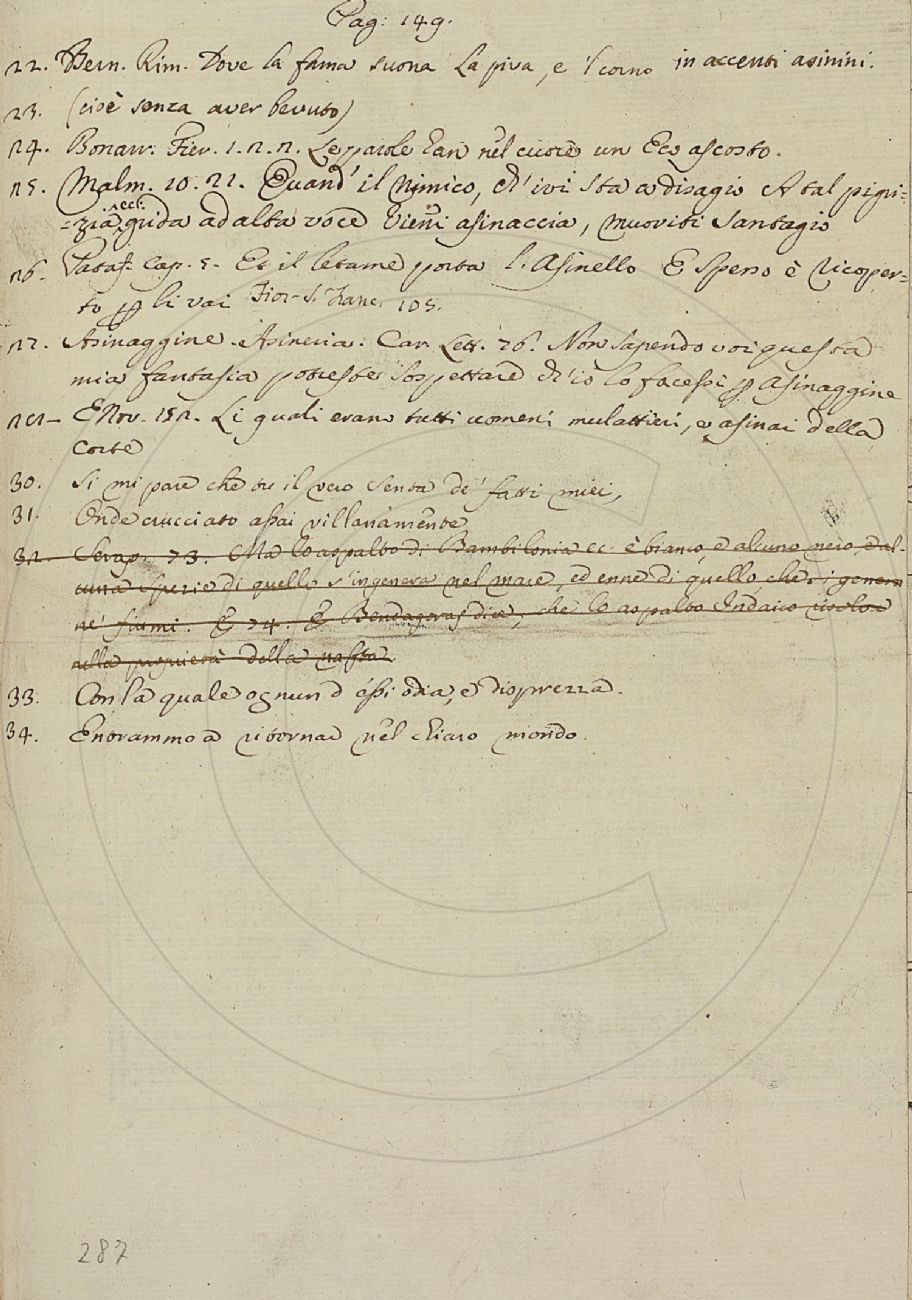 Pag: 149.
22. Bern. Rim. Dove la fama suona La piva, e 'l corno in accenti asinini.
23. (cioè senza aver bevuto)
24. Bonarr: Fier. 1. 2. 2. Le parole han nel cuore un Eco ascosto.
25. Malm. 10. 21. Quand' il Nimico, ch' ivi sta a disagio A tal pigri=
=zia, grida ad alta voce Vieni asinaccia, muoviti Santagio
26. Pataf. Cap. 5. Et il letame porta l'Asinello E spesso è ricoper=
to li vai Fior. S. Franc. 105.
27. Asinaggine. Asineria. Car. Lett. 26. Non sapendo voi questa
mia fantasia potreste sospettare ch' io lo facessi Asinaggine
E Nov. 152. Li quali erano tutti uomeni mulattieri, e asinai della
Corte
30. Si mi pare che tu il vero senta de' fatti miei,
31. Onde crucciato assai villanamente
32. Serap. 73. Ma lo aspalto di Bambilonia ec. è bianco, e alcuno nero, ed al-
cuna spezie di quello s' ingenera nel mare, ed enne di quello, che si genera
ne' fiumi. E 74. E dice, che lo aspalto Indaico
nella proprietà della nassa.
33. Con la quale ognun d'essi odia, e disprezza.
34. Entrammo a ritornar nel chiaro mondo.
287